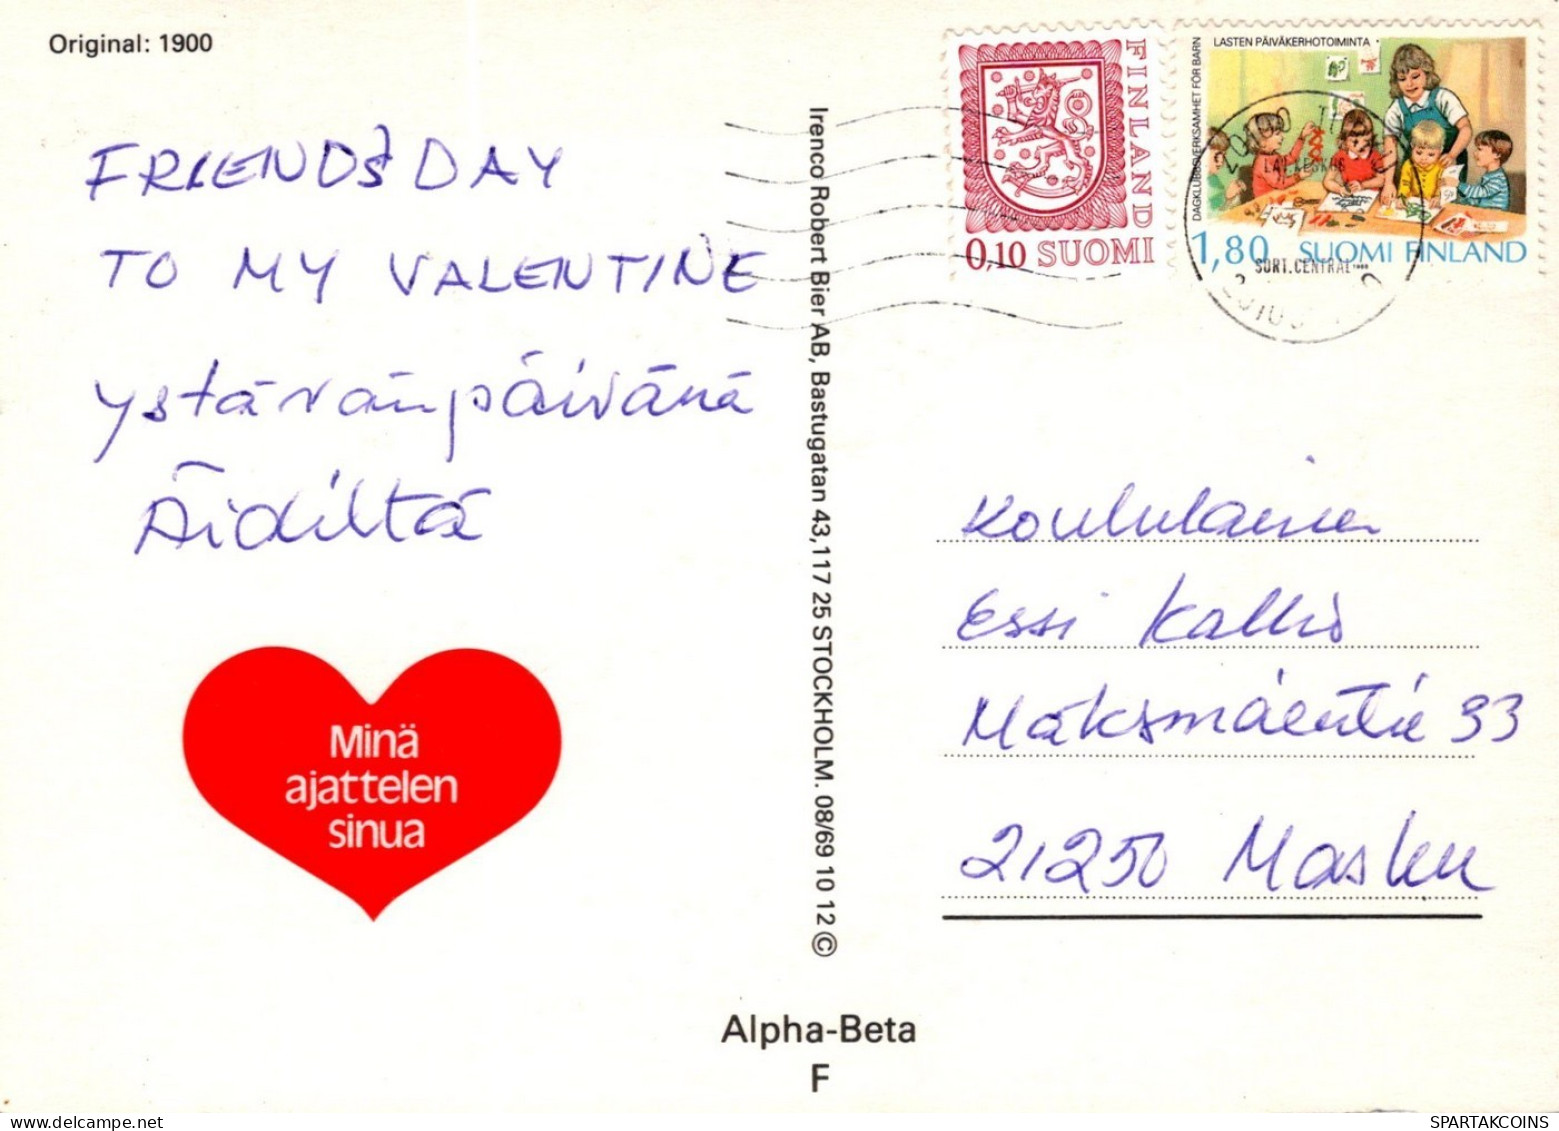 Original: 1900
FRIENDS' DAY
TO MY VALENTINE
ystävänpäivänä
Äidiltä
Minä
ajattelen
sinua
Irenco Robert Bier AB, Bastugatan 43, 117 25 STOCKHOLM. 08/69 10 12 ©
Alpha-Beta
F
FINLAND
0,10 SUOMI
LASTEN PÄIVÄKERHOTOIMINTA
DAGKLUBBSVERKSAMHET FÖR BARN
1,80 SUOMI FINLAND
SORT.CENTRAL
Koululainen
Essi Kallio
Maksmäentie 93
21250 Masku
SPARTAKCOINS